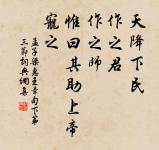 天降下民
作之君
作之師
惟曰其助上帝
寵之
孟子梁惠王章句下第
三節詞典網集